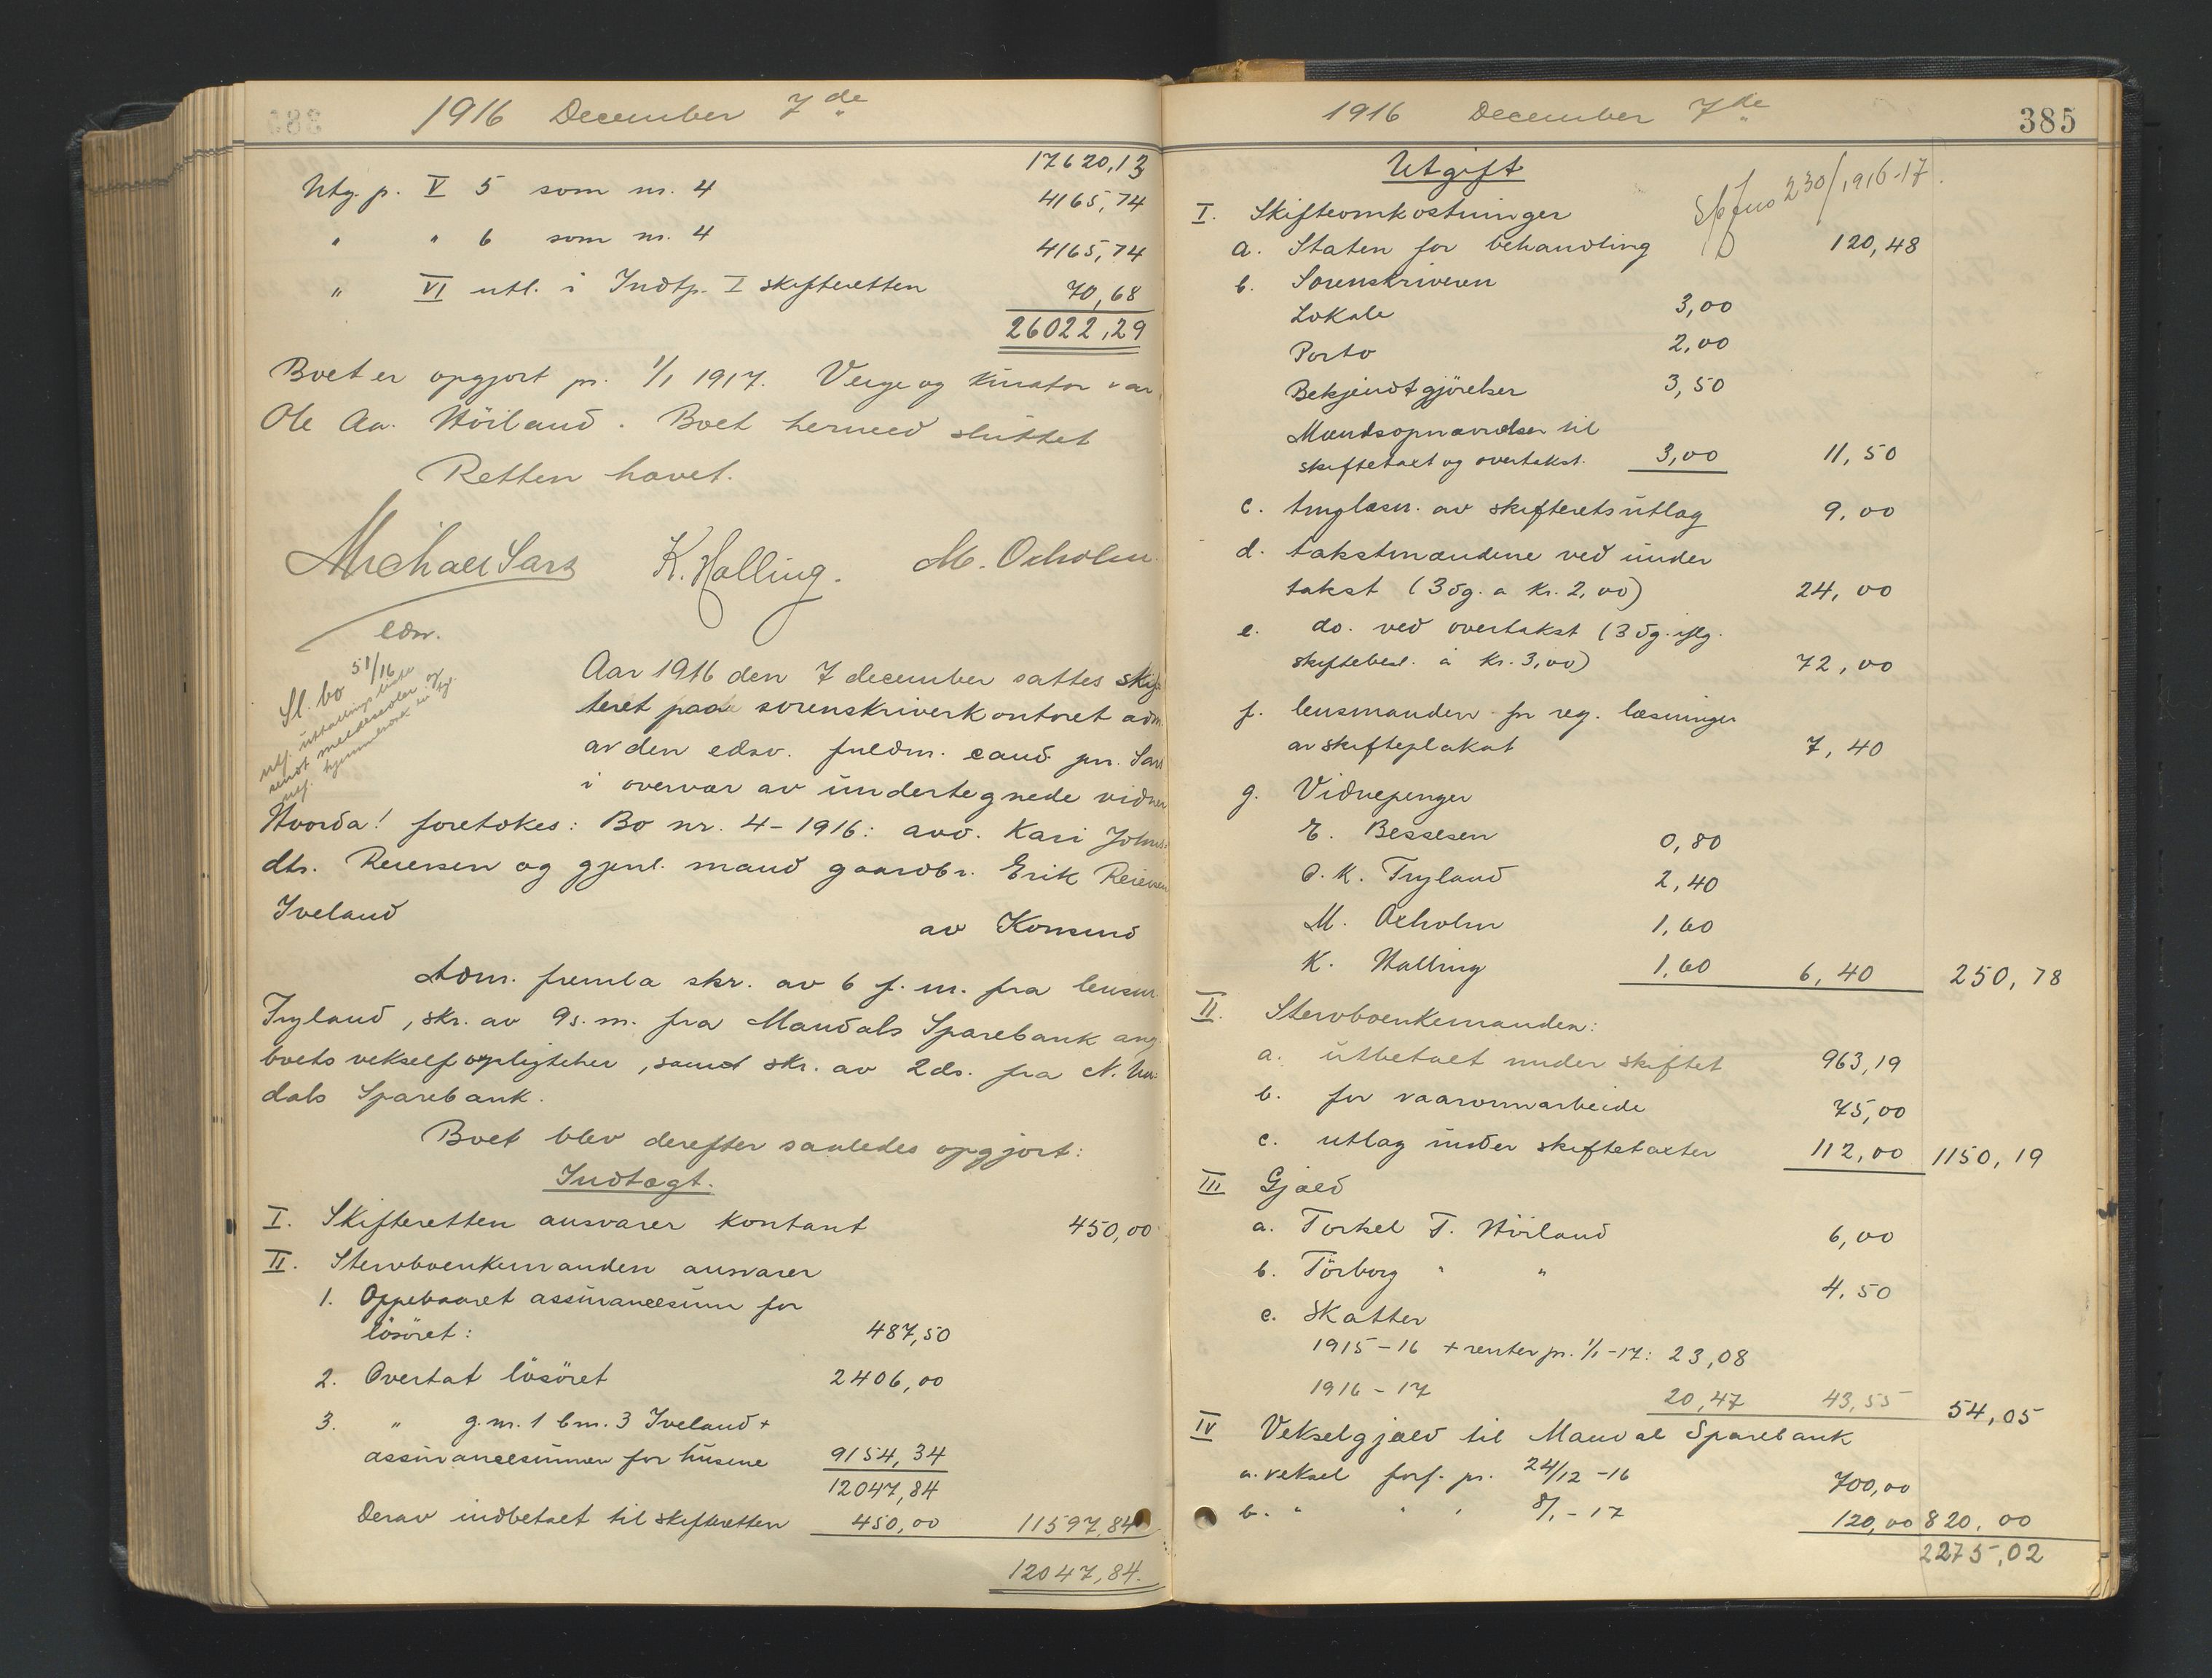 1916 December 7de
17620,13
Utg. p. V 5 som nr. 4 4165,74
" " 6 som nr. 4 4165,74
" VI utl. i Indtp. I skifteretten 70,68
26022,29
Boet er opgjort pr. 1/1 1917. Verge og kurator var
Ole Aa. Höiland. Boet hermed sluttet
Retten hævet.
Michael Sars K. Halling. M. Oxholm
edsv.
Sl. bo 51/16
utf. utlodningsliste
sendt meldesedler og
utf. hjemmelsdok. til tgl.
Aar 1916 den 7 december sattes skif
teret paa sorenskriverkontoret adm.
av den edsv. fuldm. cand. jur. Sars
i overvær av undertegnede vidner
Hvorda! foretokes: Bo nr. 4-1916: avd. Kari Johns
dtr. Reiersen og gjenl. mand gaardbr. Erik Reiersen
Iveland
av Konsmo
Adm. fremla skr. av 6 f. m. fra lensm.
Tryland, skr. av 9 s. m. fra Mandals Sparebank ang.
boets vekselforpligtelser, samt skr. av 2 ds. fra N. Un-
dals Sparebank.
Boet blev derefter saaledes opgjort:
Indtægt.
I. Skifteretten ansvarer kontant 450,00
II. Stervboenkemanden ansvarer
1. Oppebaaret assurancesum for
lösöret: 487,50
2. Overtat lösöret 2406,00
3. " g.nr. 1 bnr. 3 Iveland +
assurancesummen for husene 9154,34
12047,84
Derav indbetalt til skifteretten 450,00 11597,84
12047,84.
1916 December 7de
385
Utgift
230/1916-17.
I. Skifteomkostninger
a. Staten for behandling 120,48
b. Sorenskriveren
Lokale 3,00
Porto 2,00
Bekjendtgjörelser 3,50
Mandsopnævnelser til
skiftetaxt og overtakst. 3,00 11,50
c. tinglæsn. av skifteretsutlæg 9,00
d. takstmændene ved under
takst (3 dg. a kr. 2,00) 24,00
e. do. ved overtakst (3 dg. iflg.
skiftebesl. à kr. 3,00) 72,00
f. lensmanden for reg. læsninger
av skifteplakat 7,40
g. Vidnepenger
E. Bessesen 0,80
O. K. Tryland 2,40
M. Oxholm 1,60
K. Halling 1,60 6,40 250,78
II. Stervboenkemanden:
a. utbetalt under skiftet 963,19
b. for vaaronnarbeide 75,00
c. utlæg under skiftetaxter 112,00 1150,19
III Gjæld
a. Torkel T. Höiland 6,00
b. Törborg " " 4,50
c. Skatter
1915-16 + renter pr. 1/1-17: 23,08
1916-17 20,47 43,55 54,05
IV Vekselgjæld til Mandal Sparebank
a. veksel forf. pr. 24/12-16 700,00
b. " " " 8/1-17 120,00 820,00
2275,02